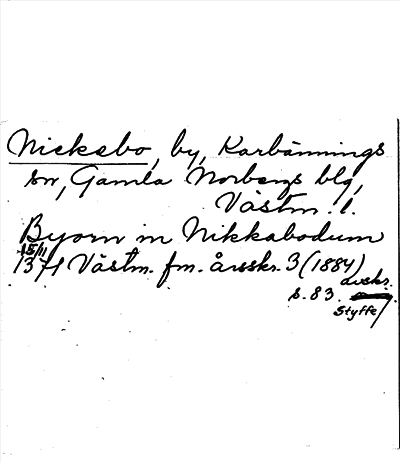 Nickebo, by, Karbännings
sn, Gamla Norbergs blg,
Västm. l.
Byorn in Nikkabodum
15/11
1371 Västm. fm. årsskr. 3 (1884)
s. 83. avskr.
Styffe